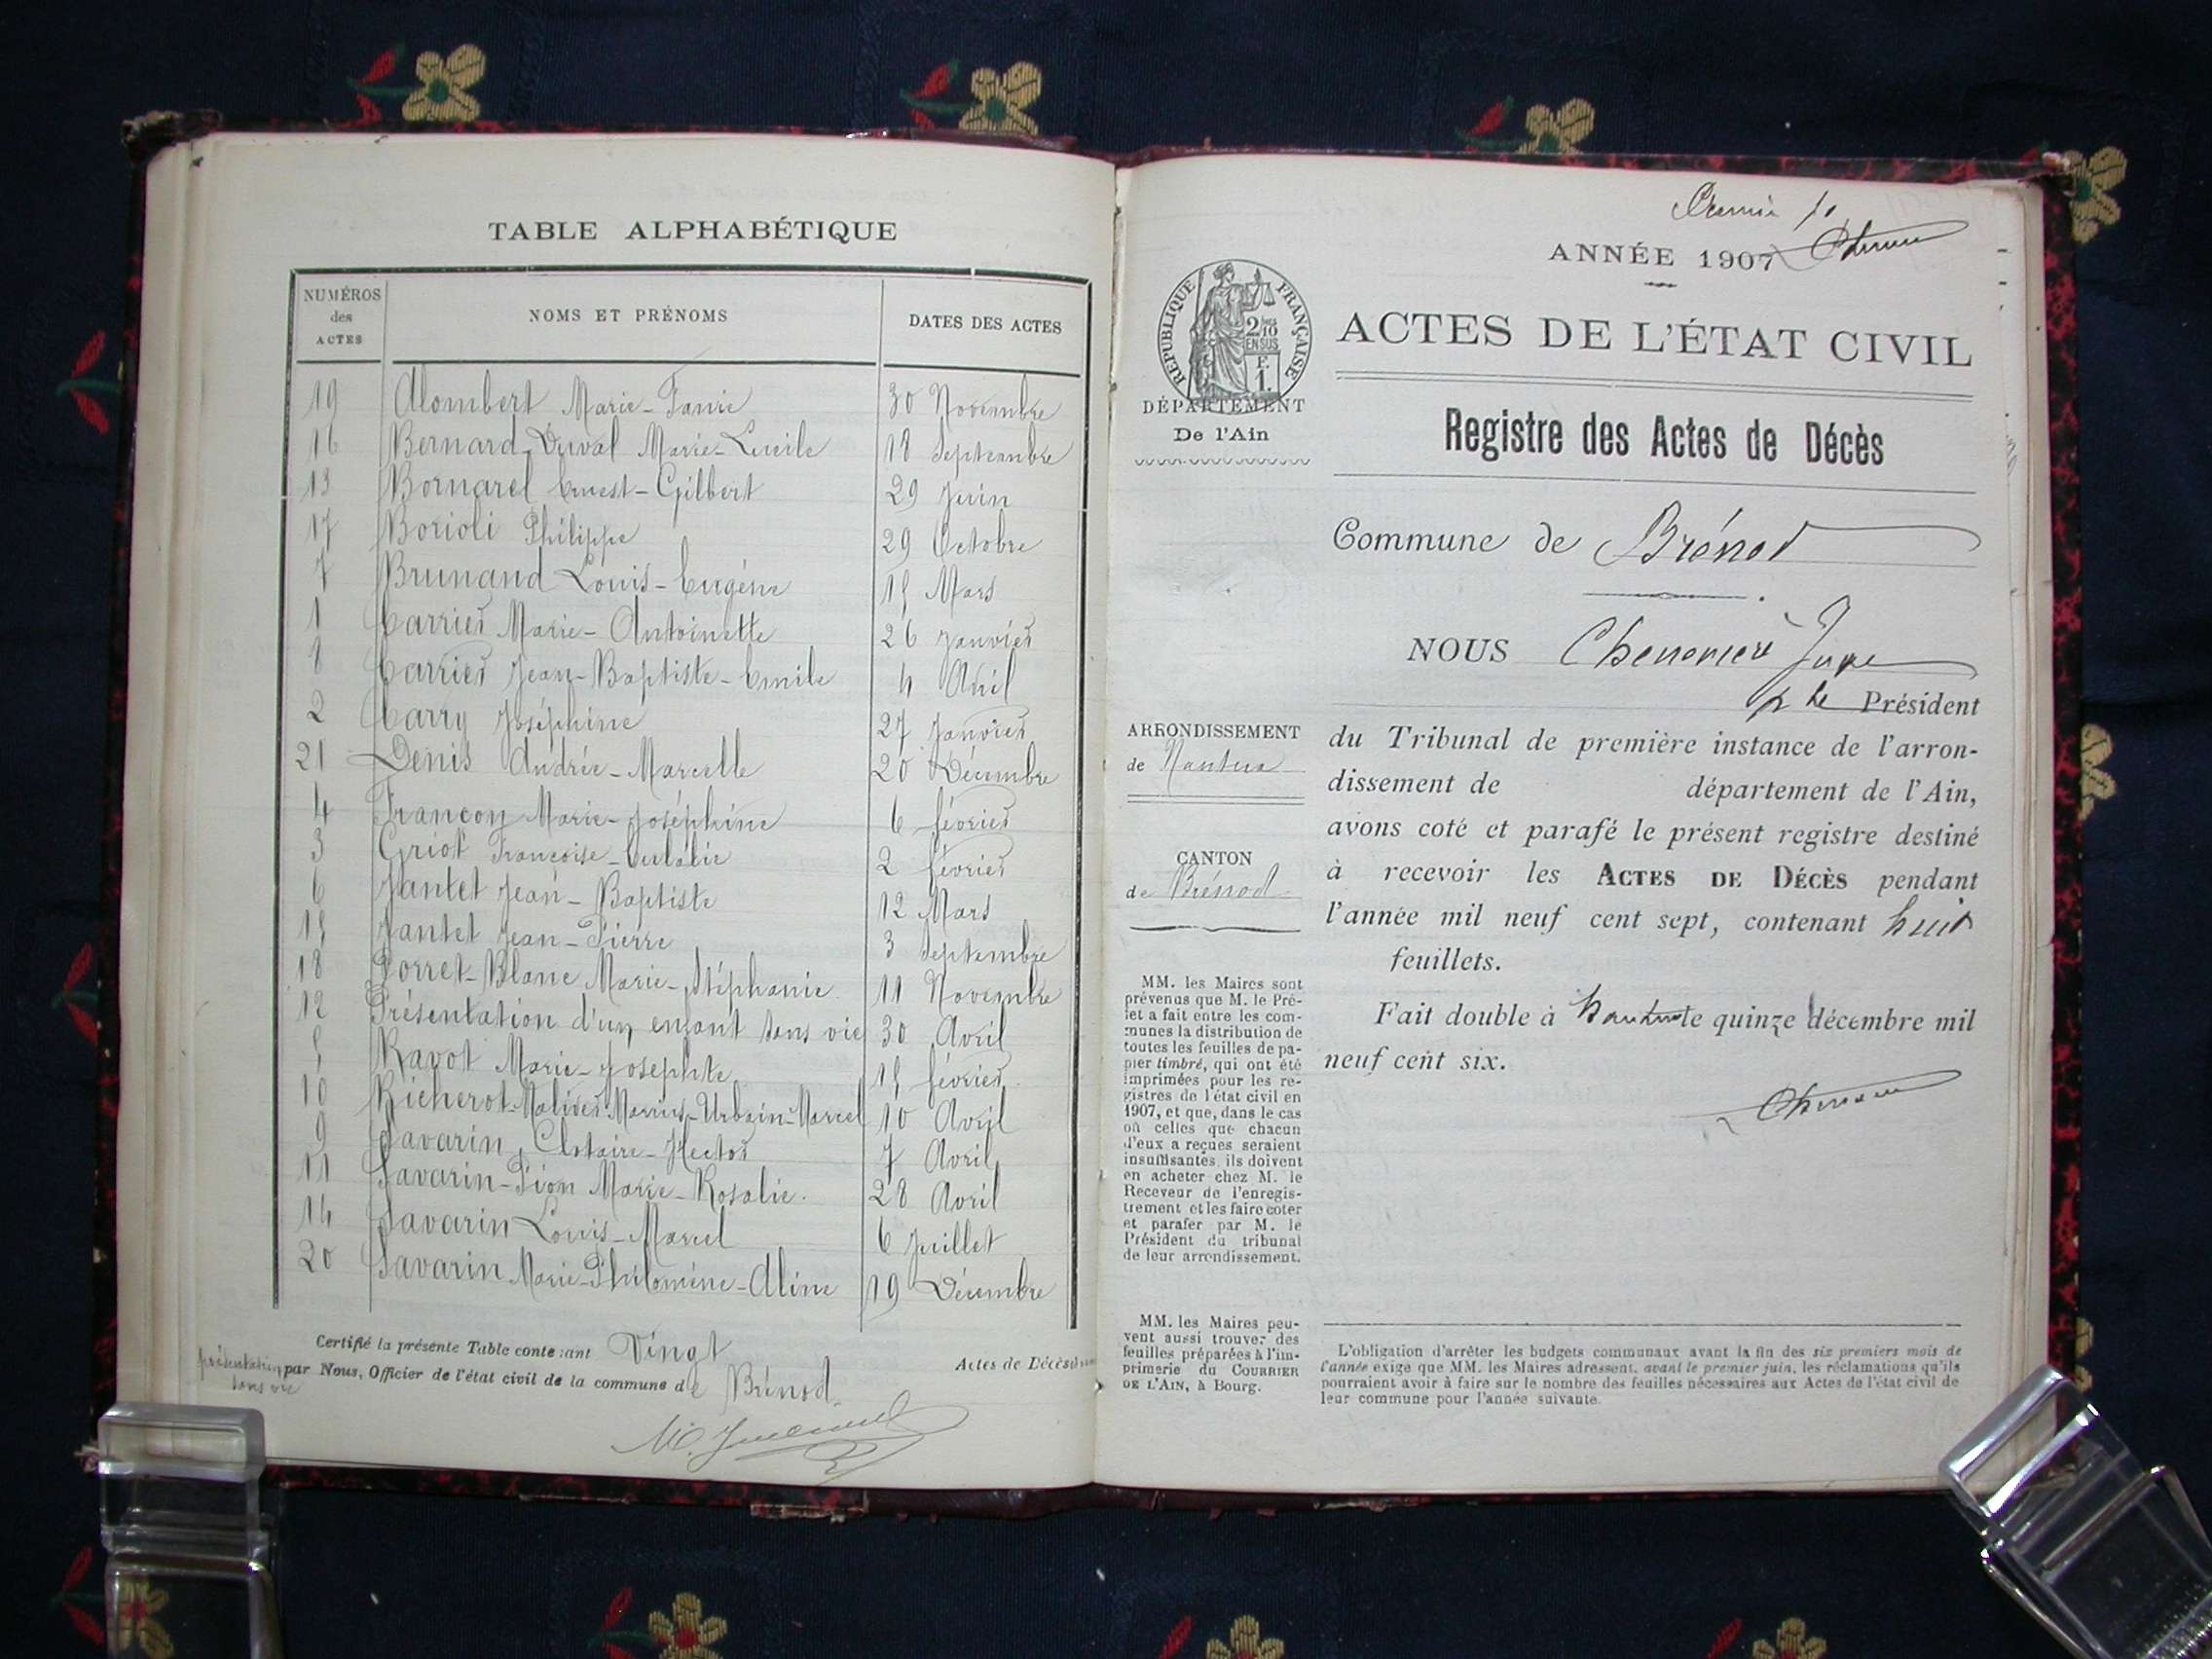 TABLE ALPHABÉTIQUE
NUMÉROS des ACTES NOMS ET PRÉNOMS DATES DES ACTES
19 Alombert Marie-Fanie 30 Novembre
16 Bernard-Duval Marie-Lucile 18 Septembre
13 Bornarel Ernest-Gilbert 29 Juin
17 Borioli Philippe 29 Octobre
7 Brunand Louis-Eugène 15 Mars
1 Carrier Marie-Antoinette 26 Janvier
8 Carrier Jean-Baptiste-Emile 4 Avril
2 Carry Joséphine 27 Janvier
21 Denis Andrée-Marcelle 20 Décembre
4 Françon Marie-Joséphine 6 février
3 Griot Françoise-Eulalie 2 février
6 Jantet Jean-Baptiste 12 Mars
15 Jantet Jean-Pierre 3 Septembre
18 Porret-Blanc Marie-Stéphanie 11 Novembre
12 Présentation d'un enfant sans vie 30 Avril
5 Ravot Marie-Josephte 15 février
10 Richerot-Malivert Marius-Urbain-Marcel 10 Avril
9 Savarin Clotaire-Hector 7 Avril
11 Savarin-Pion Marie-Rosalie. 28 Avril
14 Savarin Louis-Marcel 6 Juillet
20 Savarin Marie-Philomène-Aline 19 Décembre
Certifié la présente Table contenant Vingt Actes de Décès
présentation sans vie
par Nous, Officier de l'état civil de la commune de Brénod
ANNÉE 1907
RÉPUBLIQUE FRANÇAISE
2/10 EN SUS
F. 1.
DÉPARTEMENT
De l'Ain
ACTES DE L'ÉTAT CIVIL
Registre des Actes de Décès
Commune de Brénod
NOUS Juge
p le Président
du Tribunal de première instance de l'arron-
dissement de département de l'Ain,
avons coté et parafé le présent registre destiné
à recevoir les ACTES DE DÉCÈS pendant
l'année mil neuf cent sept, contenant huit
feuillets.
Fait double à Nantua le quinze décembre mil
neuf cent six.
ARRONDISSEMENT
de Nantua
CANTON
de Brénod
MM. les Maires sont
prévenus que M. le Pré-
fet a fait entre les com-
munes la distribution de
toutes les feuilles de pa-
pier timbré, qui ont été
imprimées pour les re-
gistres de l'état civil en
1907, et que, dans le cas
où celles que chacun
d'eux a reçues seraient
insuffisantes, ils doivent
en acheter chez M. le
Receveur de l'enregis-
trement et les faire coter
et parafer par M. le
Président du tribunal
de leur arrondissement.
MM. les Maires peu-
vent aussi trouver des
feuilles préparées à l'im-
primerie du COURRIER
DE L'AIN, à Bourg.
L'obligation d'arrêter les budgets communaux avant la fin des six premiers mois de
l'année exige que MM. les Maires adressent, avant le premier juin, les réclamations qu'ils
pourraient avoir à faire sur le nombre des feuilles nécessaires aux Actes de l'état civil de
leur commune pour l'année suivante.